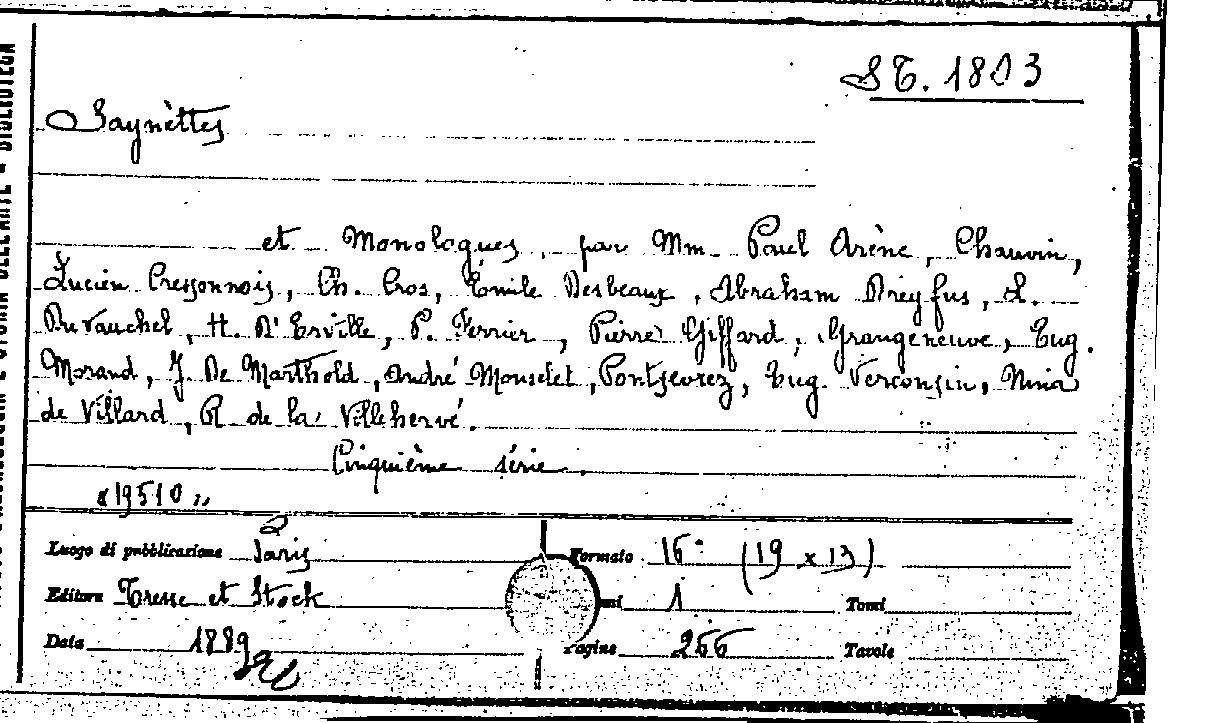 ST. 1803
Saynèttes
et Monologues, par Mm. Paul Arène, Chauvin,
Lucien Cressonnois, Ch. Cros, Émile Desbeaux, Abraham Dreyfus, L.
Duvauchel, H. D'Erville, P. Ferrier, Pierre Giffard, Grangeneuve, Eug.
Morand, J. De Marthold, André Monselet, Pontsevrez, Eug. Verconsin, Nina
de Villard, R. de la Villehervé.
Cinquième série.
«19510»
Luogo di pubblicazione Paris Formato 16° (19 x 13)
Editore Tresse et Stock 1 Tomi
Data 1889 Pagine 266 Tavole